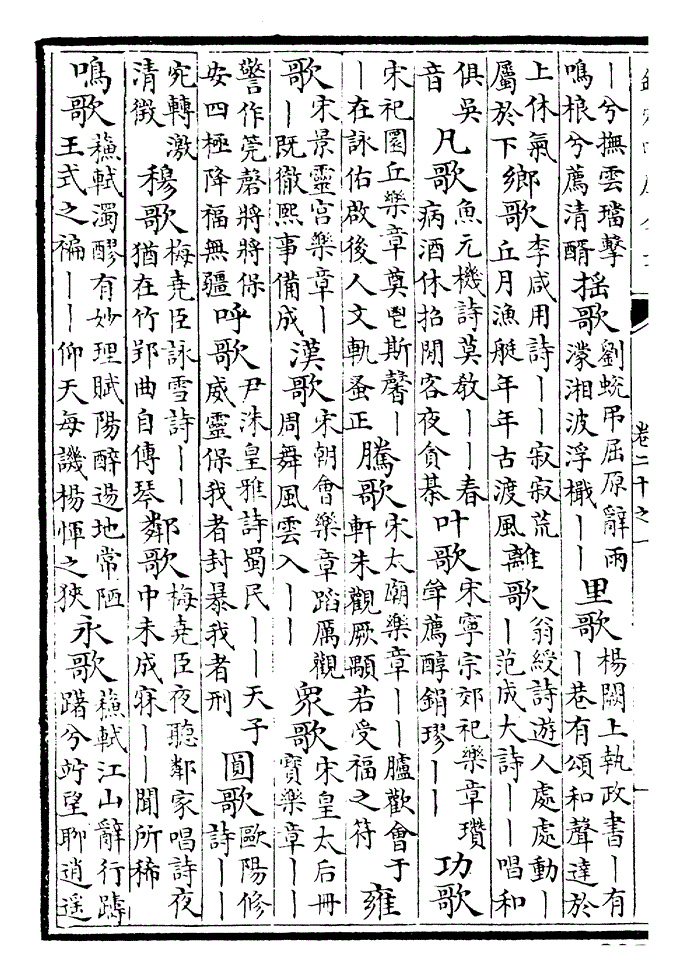 卷二十之一
｜兮撫雲璫擊
鳴榔兮薦清醑
搖歌
劉蛻弔屈原辭雨
濛湘波浮檝｜｜
里歌
楊闕上執政書｜有
｜巷有頌和聲達於
上休氣
屬於下
鄉歌
李咸用詩｜｜寂寂荒
丘月漁艇年年古渡風
離歌
翁綬詩遊人處處動｜
｜范成大詩｜｜唱和
俱吳
音
凡歌
魚元機詩莫教｜｜春
病酒休招閒客夜貪棊
叶歌
宋寧宗郊祀樂章瓚
斝薦醇鋗璆｜｜
功歌
宋祀圜丘樂章奠鬯斯馨｜
｜在詠佑啟後人文軌蚤正
騰歌
宋太廟樂章｜｜臚歡會于
軒朱觀厥顒若受福之符
雍
歌
宋景靈宮樂章｜
｜既徹熙事備成
漢歌
宋朝會樂章蹈厲觀
周舞風雲入｜｜
眾歌
宋皇太后冊
寶樂章｜｜
警作筦磬將將保
安四極降福無疆
呼歌
尹洙皇雅詩蜀民｜｜天子
威靈保我者封暴我者刑
圓歌
歐陽修
詩｜｜
宛轉激
清徵
穆歌
梅堯臣詠雪詩｜｜
猶在竹郢曲自傳琴
鄰歌
梅堯臣夜聽鄰家唱詩夜
中未成寐｜｜聞所稀
鳴歌
蘇軾濁醪有妙理賦陽醉逷地常陋
王式之褊｜｜仰天每譏楊惲之狹
永歌
蘇軾江山辭行躊
躇兮竚望聊逍遙